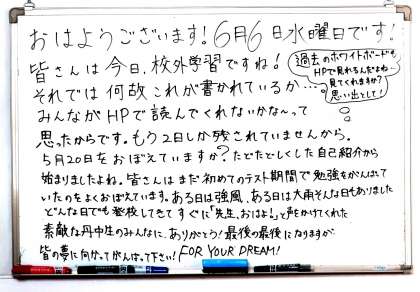 おはようございます!6月6日水曜日です!
皆さんは今日、校外学習ですね!
過去のホワイトボードも
HPで見れるんだよね〜
見てくれますか?
思い出として!
それでは何故これが書かれているか…
みんながHPで読んでくれないかな〜って
思ったからです。もう2日しか残されていませんから。
5月20日をおぼえていますか?たどたどしくした自己紹介から
始まりましたよね。皆さんはまだ初めてのテスト期間で勉強をがんばって
いたのをよくおぼえています。ある日は強風、ある日は大雨そんな日もありました
どんな日でも登校してきてすぐに「先生、おはよ!」と声をかけてくれた
素敵な丹中生のみんなに、ありがとう!最後の最後になりますが、
皆の夢に向かってがんばって下さい!FOR YOUR DREAM!